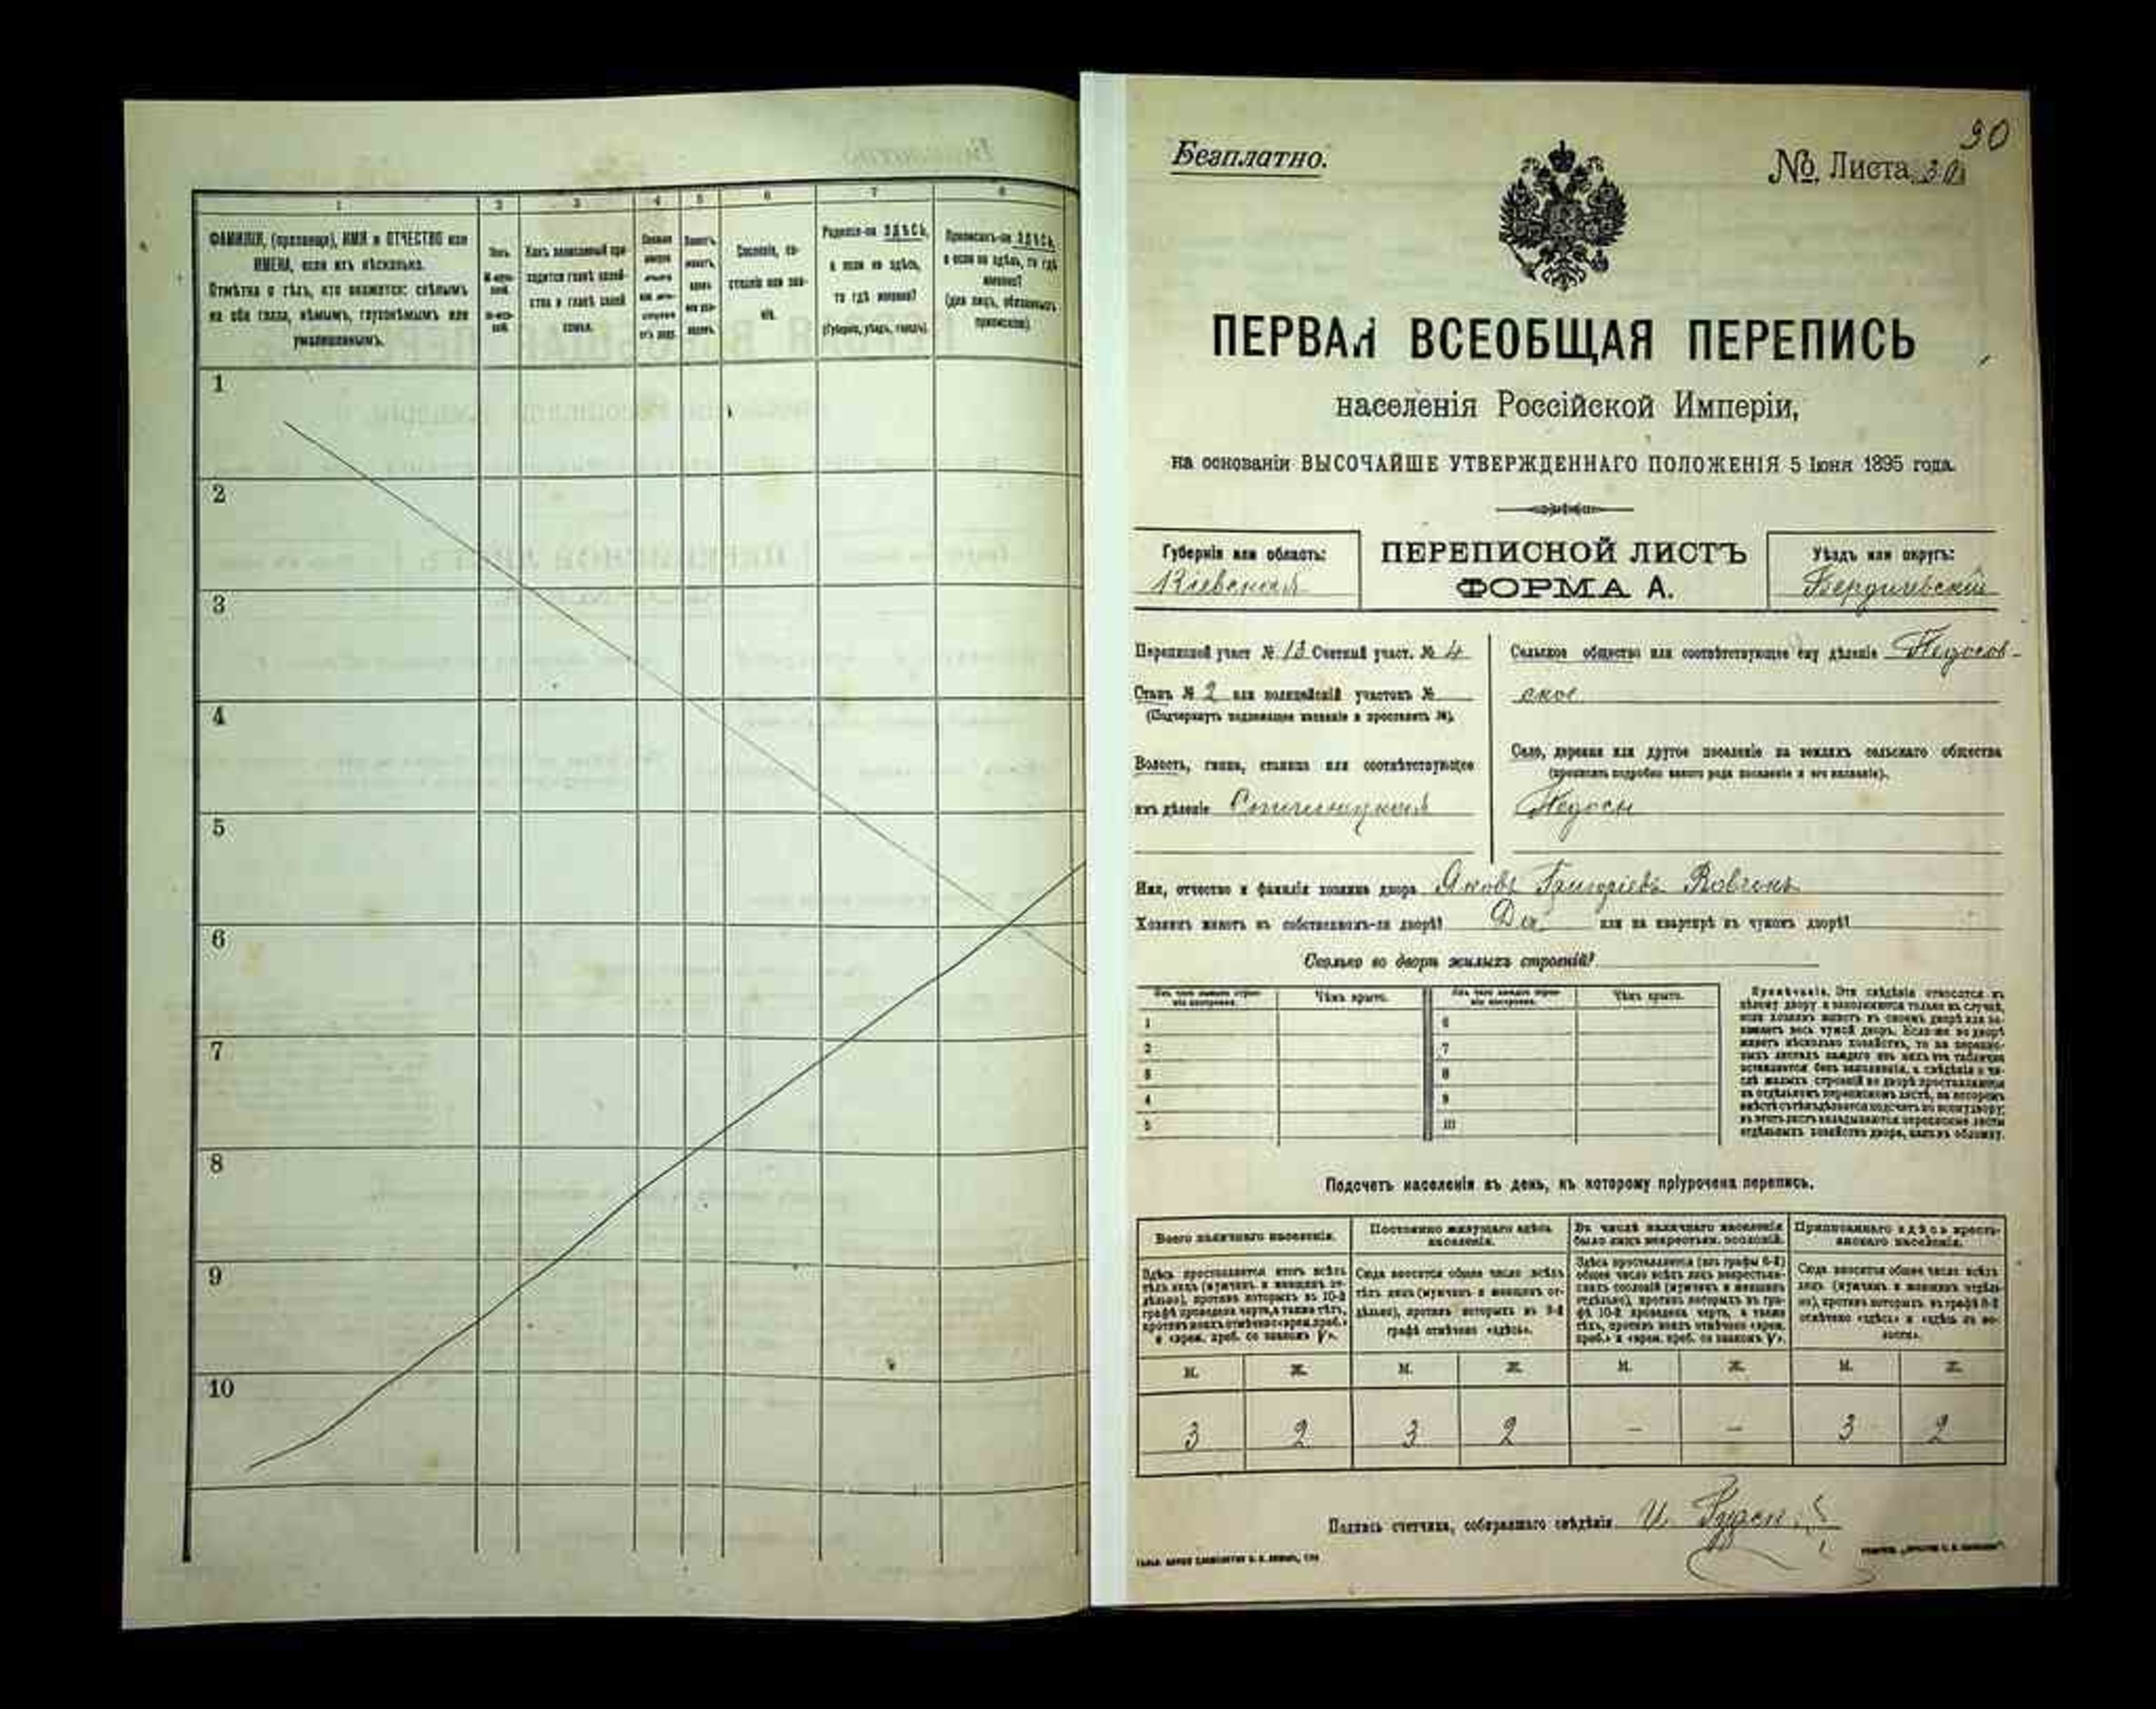 1 2 3 4 5 6 7 8
ФАМИЛІЯ, (прозвище), ИМЯ и ОТЧЕСТВО или
ИМЕНА, если ихъ нѣсколько.
Отмѣтка о тѣхъ, кто окажется: слѣпымъ
на оба глаза, нѣмымъ, глухонѣмымъ или
умалишеннымъ.
Полъ.
Какъ записанный при-
ходится главѣ хозяй-
ства и главѣ своей
семьи.
Сословіе, со-
стояніе или зва-
ніе.
Родился-ли ЗДѢСЬ,
а если не здѣсь,
то гдѣ именно?
(Губернія, уѣздъ, городъ).
Приписанъ-ли ЗДѢСЬ,
а если не здѣсь, то гдѣ
именно?
(для лицъ, обязанныхъ
припискою).
1
2
3
4
5
6
7
8
9
10
90
Безплатно.
№ Листа 30
ПЕРВАЯ ВСЕОБЩАЯ ПЕРЕПИСЬ
населенія Россійской Имперіи,
на основаніи ВЫСОЧАЙШЕ УТВЕРЖДЕННАГО ПОЛОЖЕНІЯ 5 Іюня 1895 года.
Губернія или область:
Кіевская
ПЕРЕПИСНОЙ ЛИСТЪ
ФОРМА А.
Уѣздъ или округъ:
Бердичевскій
Переписной участ № 13 Счетный участ. № 4
Станъ № 2 или полицейскій участокъ №
(Подчеркнуть подлежащее названіе и проставить №).
Волость, гмина, станица или соотвѣтствующее
имъ дѣленіе
Сельское общество или соотвѣтствующее ему дѣленіе
ское
Село, деревня или другое поселеніе на земляхъ сельскаго общества
(прописать подробно какого рода поселеніе и его названіе).
Имя, отчество и фамилія хозяина двора Яковъ Григоріевъ
Хозяинъ живетъ въ собственномъ-ли дворѣ? Да или на квартирѣ въ чужомъ дворѣ?
Сколько во дворѣ жилыхъ строеній?
Изъ чего каждое строе-
ніе построено. Чѣмъ крыто. Изъ чего каждое строе-
ніе построено. Чѣмъ крыто.
1 6
2 7
3 8
4 9
5 10
Примѣчаніе. Эти свѣдѣнія относятся къ
цѣлому двору и заполняются только въ случаѣ,
если хозяинъ живетъ въ своемъ дворѣ или за-
нимаетъ весь чужой дворъ. Если же во дворѣ
живетъ нѣсколько хозяйствъ, то на перепис-
ныхъ листахъ каждаго изъ нихъ эта табличка
оставляется безъ заполненія, а свѣдѣнія о чи-
слѣ жилыхъ строеній во дворѣ проставляются
на отдѣльномъ переписномъ листѣ, на которомъ
вмѣстѣ съ тѣмъ дѣлается подсчетъ по всему двору;
въ этотъ листъ вкладываются переписные листы
отдѣльныхъ хозяйствъ двора, какъ въ обложку.
Подсчетъ населенія въ день, къ которому пріурочена перепись.
Всего наличнаго населенія.
Постоянно живущаго здѣсь
населенія.
Въ числѣ наличнаго населенія
было лицъ некрестьян. сословій.
Приписаннаго здѣсь кресть-
янскаго населенія.
Здѣсь проставляется итогъ всѣхъ
тѣхъ лицъ (мужчинъ и женщинъ от-
дѣльно), противъ которыхъ въ 10-й
графѣ проведена черта, а также тѣхъ,
противъ коихъ отмѣчено «врем. преб.»
и «врем. преб. со знакомъ V».
Сюда вносится общее число всѣхъ
тѣхъ лицъ (мужчинъ и женщинъ от-
дѣльно), противъ которыхъ въ 9-й
графѣ отмѣчено «здѣсь».
Здѣсь проставляется (изъ графы 6-й)
общее число всѣхъ лицъ некрестьян-
скихъ сословій (мужчинъ и женщинъ
отдѣльно), противъ которыхъ въ гра-
фѣ 10-й проведена черта, а также
тѣхъ, противъ коихъ отмѣчено «врем.
преб.» и «врем. преб. со знакомъ V».
Сюда вносится общее число всѣхъ
лицъ (мужчинъ и женщинъ отдѣль-
но), противъ которыхъ въ графѣ 8-й
отмѣчено «здѣсь» и «здѣсь въ во-
лости».
М. Ж. М. Ж. М. Ж. М. Ж.
3 2 3 2 – – 3 2
Подпись счетчика, собиравшаго свѣдѣнія И.